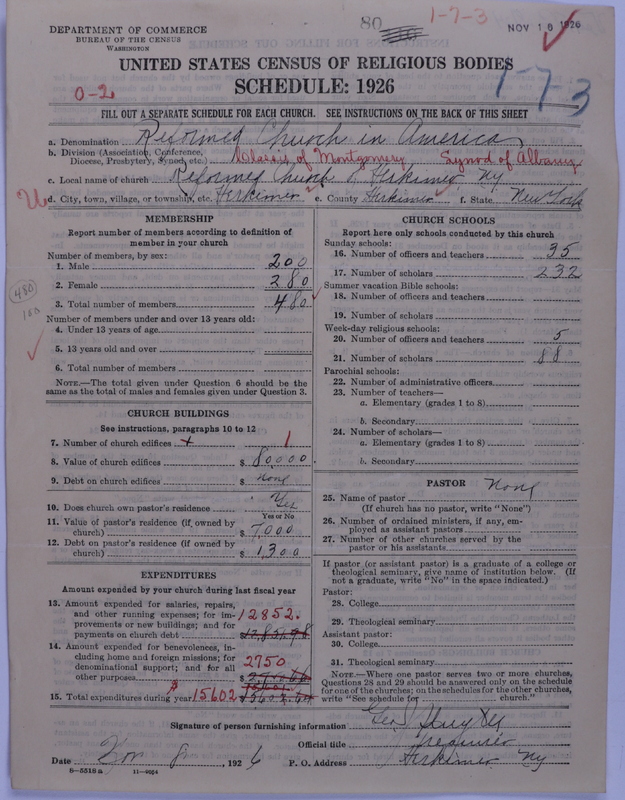 80
1-7-3
NOV 18 1926
DEPARTMENT OF COMMERCE
BUREAU OF THE CENSUS
WASHINGTON
UNITED STATES CENSUS OF RELIGIOUS BODIES
SCHEDULE: 1926
1-7-3
0-2
FILL OUT A SEPARATE SCHEDULE FOR EACH CHURCH. SEE INSTRUCTIONS ON THE BACK OF THIS SHEET
a. Denomination Reformed Church in America
b. Division (Association, Conference, Diocese, Presbytery, Synod, etc.) Classis of Montgomery Synod of Albany
c. Local name of church Reformed Church of Herkimer NY
d. City, town, village, or township, etc. Herkimer e. County Herkimer f. State New York
MEMBERSHIP
Report number of members according to definition of member in your church
Number of members, by sex:
1. Male 200
2. Female 280
3. Total number of members 480
480
Number of members under and over 13 years old:
4. Under 13 years of age
5. 13 years old and over
6. Total number of members
NOTE.—The total given under Question 6 should be the same as the total of males and females given under Question 3.
CHURCH BUILDINGS
See instructions, paragraphs 10 to 12
7. Number of church edifices 1
8. Value of church edifices $ 80000
9. Debt on church edifices $ none
10. Does church own pastor's residence Yes
Yes or No
11. Value of pastor's residence (if owned by church) $ 7000
12. Debt on pastor's residence (if owned by church) $ 1300
EXPENDITURES
Amount expended by your church during last fiscal year
13. Amount expended for salaries, repairs, and other running expenses; for improvements or new buildings; and for payments on church debt 12852.
14. Amount expended for benevolences, including home and foreign missions; for denominational support; and for all other purposes 2750
15. Total expenditures during year 15602
CHURCH SCHOOLS
Report here only schools conducted by this church
Sunday schools:
16. Number of officers and teachers 35
17. Number of scholars 232
Summer vacation Bible schools:
18. Number of officers and teachers
19. Number of scholars
Week-day religious schools:
20. Number of officers and teachers 5
21. Number of scholars 88
Parochial schools:
22. Number of administrative officers
23. Number of teachers—
a. Elementary (grades 1 to 8)
b. Secondary
24. Number of scholars—
a. Elementary (grades 1 to 8)
b. Secondary
PASTOR
25. Name of pastor None
(If church has no pastor, write "None")
26. Number of ordained ministers, if any, employed as assistant pastors
27. Number of other churches served by the pastor or his assistants
If pastor (or assistant pastor) is a graduate of a college or theological seminary, give name of institution below. (If not a graduate, write "No" in the space indicated.)
Pastor:
28. College
29. Theological seminary
Assistant pastor:
30. College
31. Theological seminary
NOTE.—Where one pastor serves two or more churches, Questions 28 and 29 should be answered only on the schedule for one of the churches; on the schedules for the other churches, write "See schedule for church."
Signature of person furnishing information Geo
Official title Treasurer
Date Nov 8, 1926 P. O. Address Herkimer NY
8-5518a 11-9024